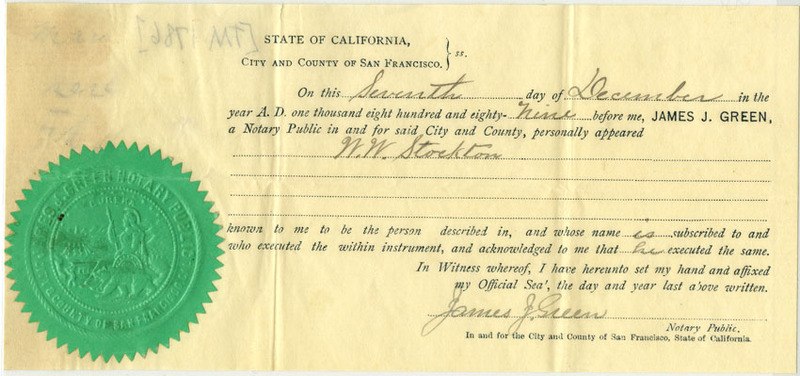 [TM 1786]
STATE OF CALIFORNIA,
CITY AND COUNTY OF SAN FRANCISCO. } ss.
On this Seventh day of December in the
year A. D. one thousand eight hundred and eighty-Nine before me, JAMES J. GREEN,
a Notary Public in and for said City and County, personally appeared
W. W. Stockton
known to me to be the person described in, and whose name is subscribed to and
who executed the within instrument, and acknowledged to me that he executed the same.
In Witness whereof, I have hereunto set my hand and affixed
my Official Sea', the day and year last above written.
James J. Green
Notary Public.
In and for the City and County of San Francisco, State of California.
JAMES J. GREEN NOTARY PUBLIC
COUNTY OF SAN FRANCISCO